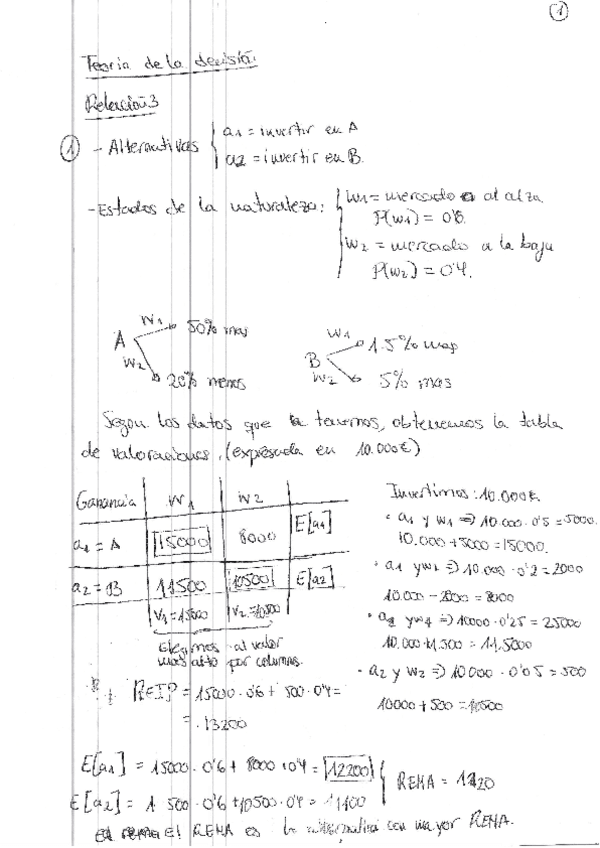 1
Teoría de la decisión.
Relación 3
1 - Alternativas { a1 = invertir en A
a2 = invertir en B.
- Estados de la naturaleza: { w1 = mercado al alza.
P(w1) = 0'6.
w2 = mercado a la baja
P(w2) = 0'4.
A w1 → 50% mas
w2 → 20% menos
B w1 → 15% mas
w2 → 5% mas
Segun los datos que tenemos, obtenemos la tabla
de valoraciones, (expresada en 10.000€)
Ganancia | w1 | w2
a1 = A | 15000 | 8000 | E[a1]
a2 = B | 11500 | 10500 | E[a2]
V1 = 15000 | V2 = 10500
Elegimos al valor
mas alto por columnas.
REIP = 15000 · 0'6 + 500 · 0'4 =
= 13200
Invertimos: 10.000€.
· a1 y w1 ⇒ 10.000 · 0'5 = 5000.
10.000 + 5000 = 15000.
· a1 y w2 ⇒ 10.000 · 0'2 = 2000
10.000 - 2000 = 8000
y w1 ⇒ 10000 · 0'25 = 25000
10.000 · 11.500 = 11.5000
· a2 y w2 ⇒ 10000 · 0'05 = 500
10000 + 500 = 10500
E[a1] = 15000 · 0'6 + 8000 · 0'4 = 12200
E[a2] = 1 500 · 0'6 + 10500 · 0'4 = 11100
} REMA =
El REMA es la alternativa con mayor REMA.